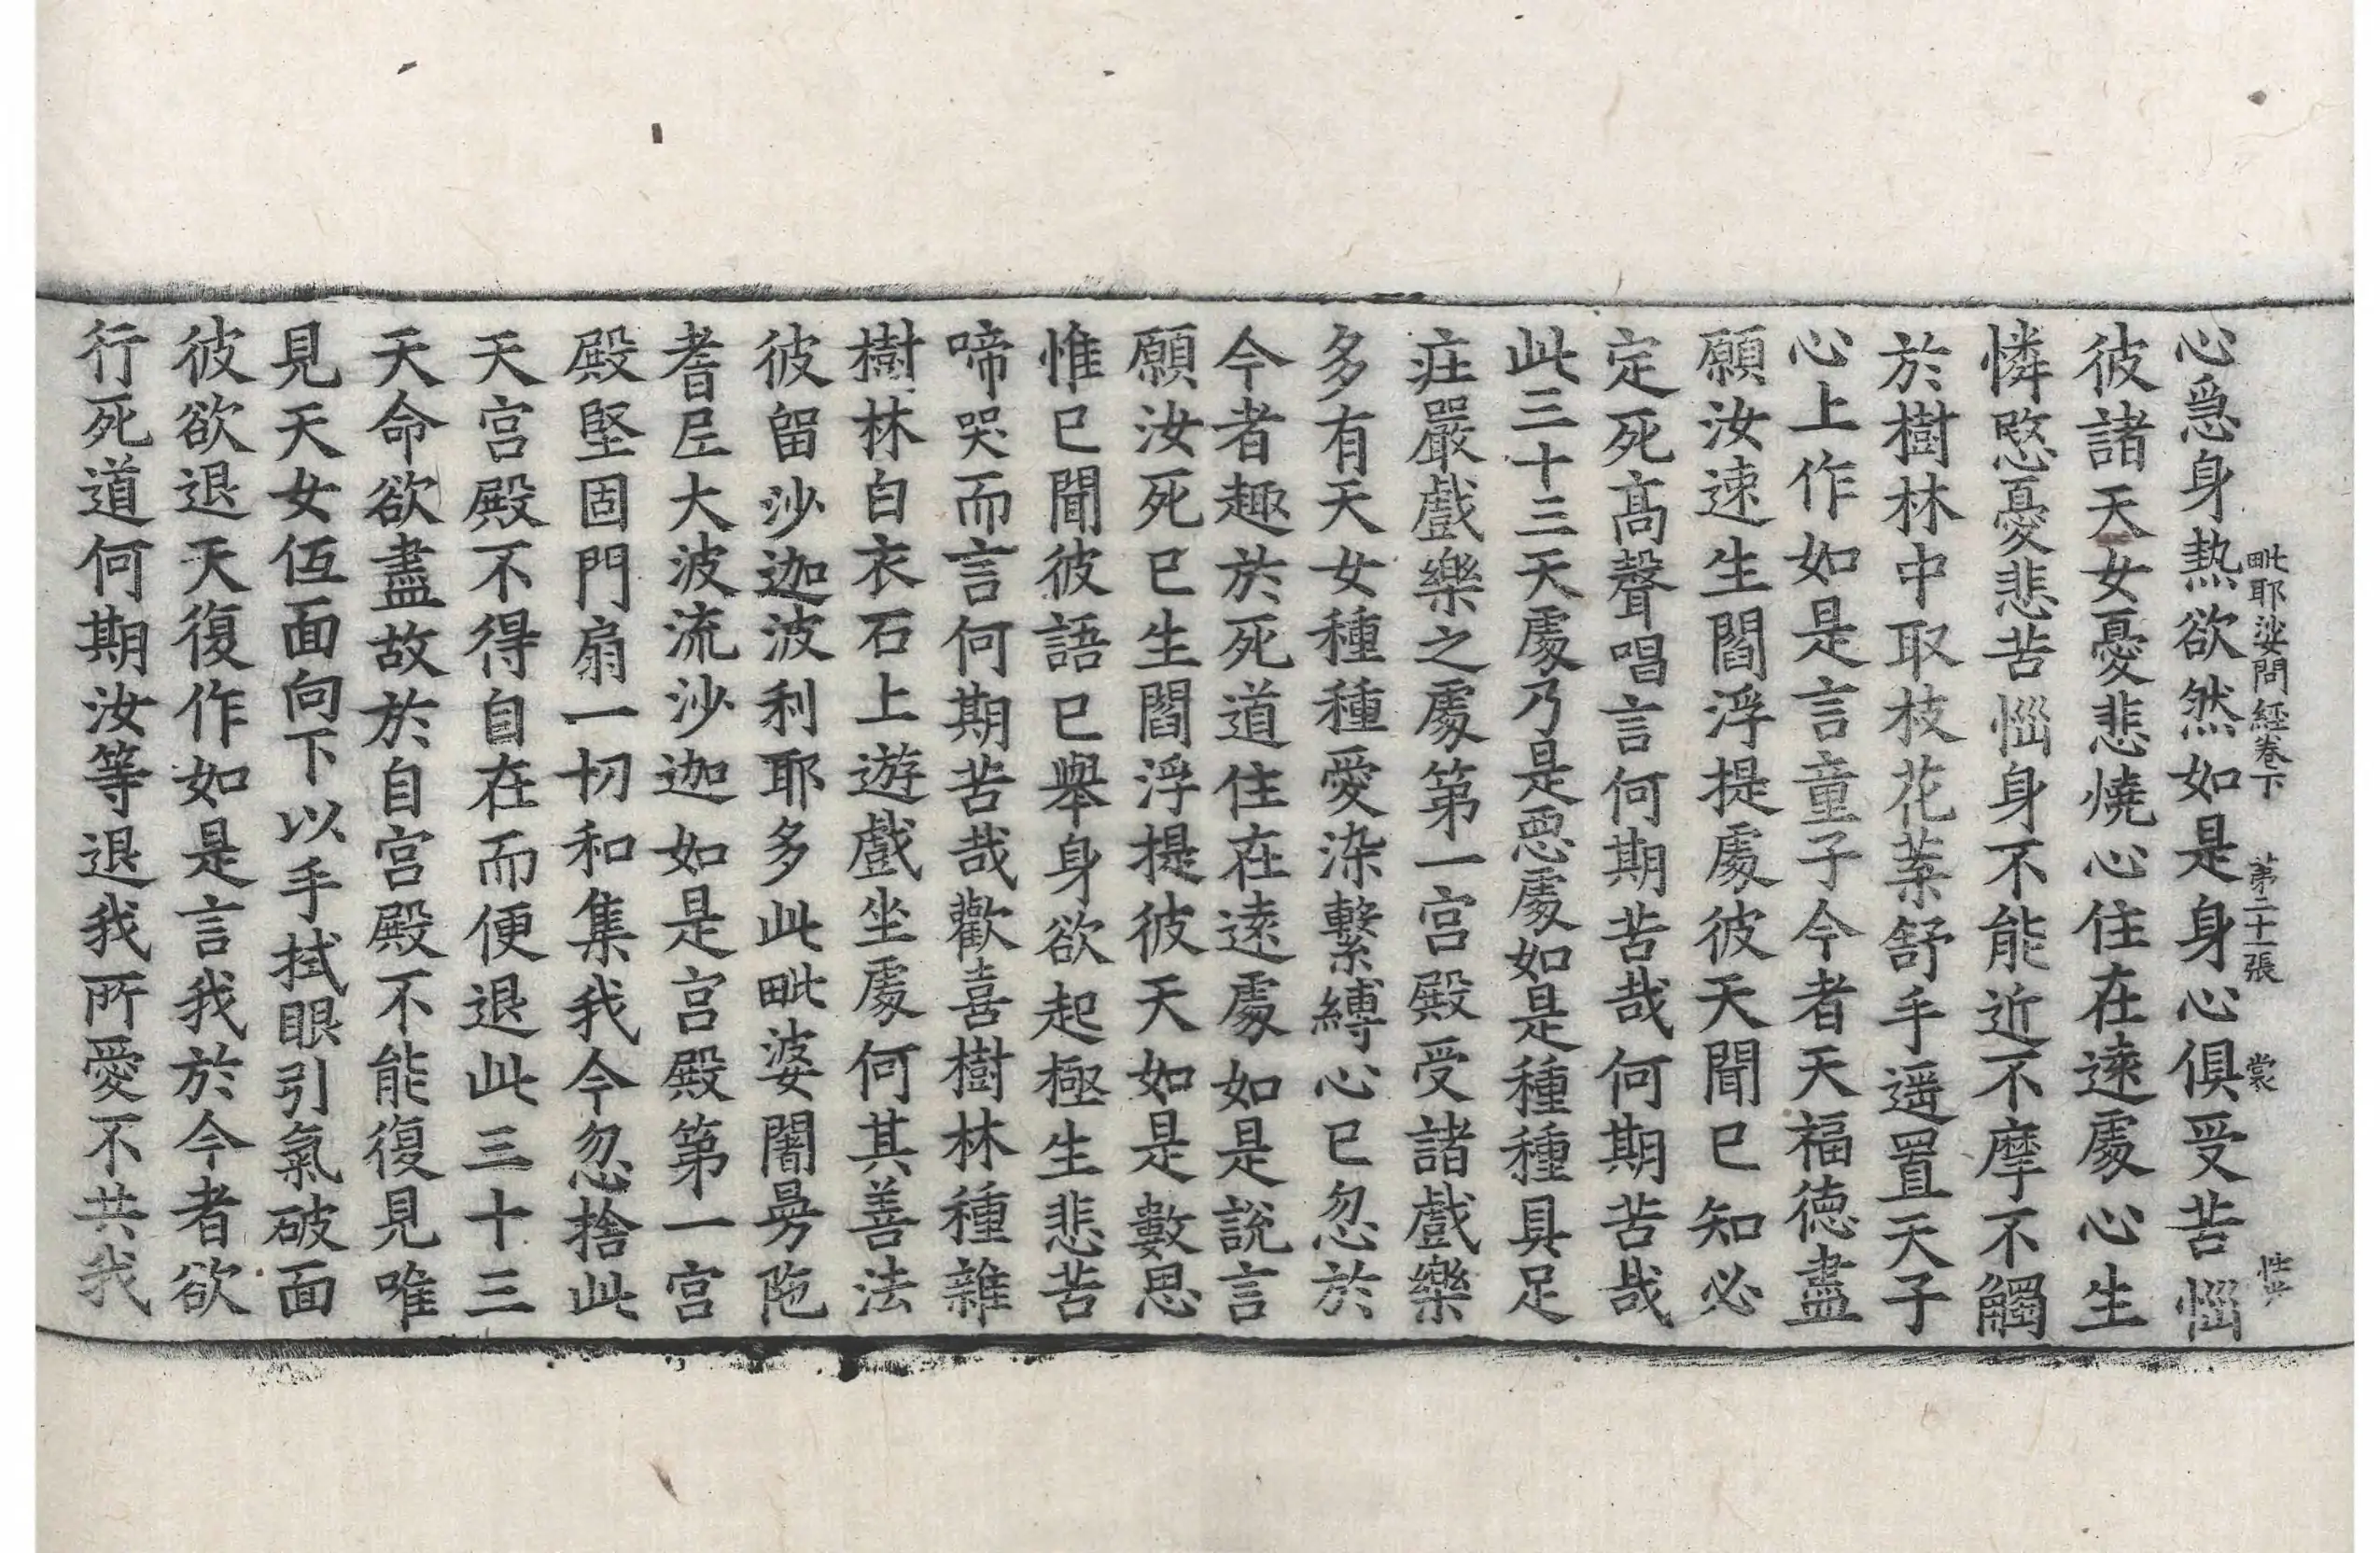 毗耶娑問經卷下　第二十一張　裳
心急身熱欲然如是身心俱受苦惱
彼諸天女憂悲燒心住在遠處心生
憐愍憂悲苦惱身不能近不摩不觸
於樹林中取枝花葉舒手遥置天子
心上作如是言童子今者天福德盡
願汝速生閻浮提處彼天聞已知必
定死高聲唱言何期苦哉何期苦哉
此三十三天處乃是惡處如是種種具足
莊嚴戲樂之處第一宮殿受諸戲樂
多有天女種種愛染繫縛心已忽於
今者趣於死道住在遠處如是說言
願汝死已生閻浮提彼天如是數思
惟已聞彼語已舉身欲起極生悲苦
啼哭而言何期苦哉歡喜樹林種雜
樹林白衣石上遊戲坐處何其善法
彼留沙迦波利耶多此毗婆闍㝵陁
耆𡰱大波流沙迦如是宮殿第一宮
殿堅固門扇一切和集我今忽捨此
天宮殿不得自在而便退此三十三
天命欲盡故於自宮殿不能復見唯
見天女㐰面向下以手拭眼引氣破面
彼欲退天復作如是言我於今者欲
行死道何期汝等退我所愛不共我